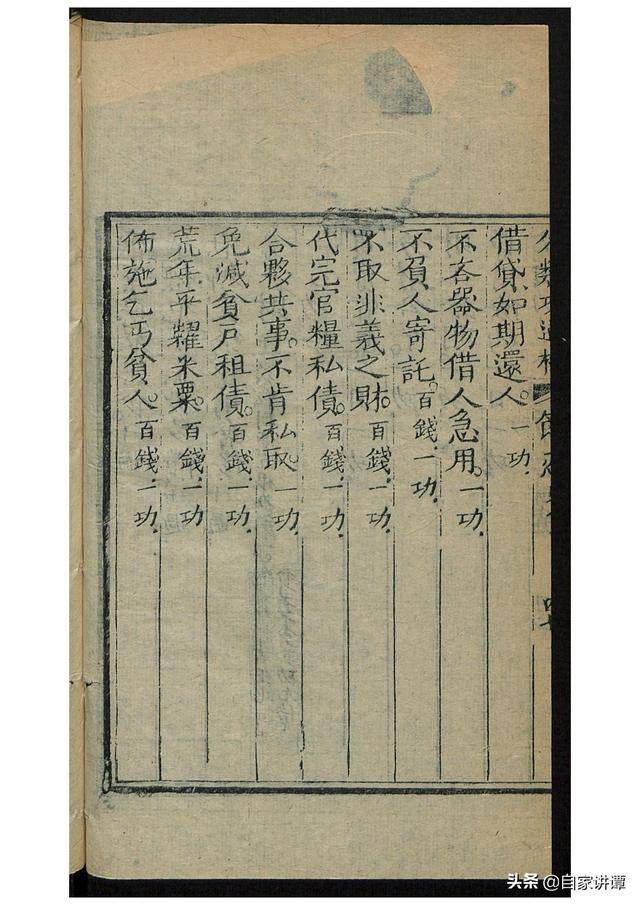 借貸如期還人。一功.
不吝器物借人急用。一功.
不負人寄託。百錢.一功.
不取非義之財。百錢.一功.
代完官糧私債。百錢.一功.
合夥共事。不肯私取。一功.
免減貧戶租債。百錢.一功.
荒年平糶米粟。百錢.一功
佈施乞丐貧人。百錢.一功.
头条 @自家讲谭